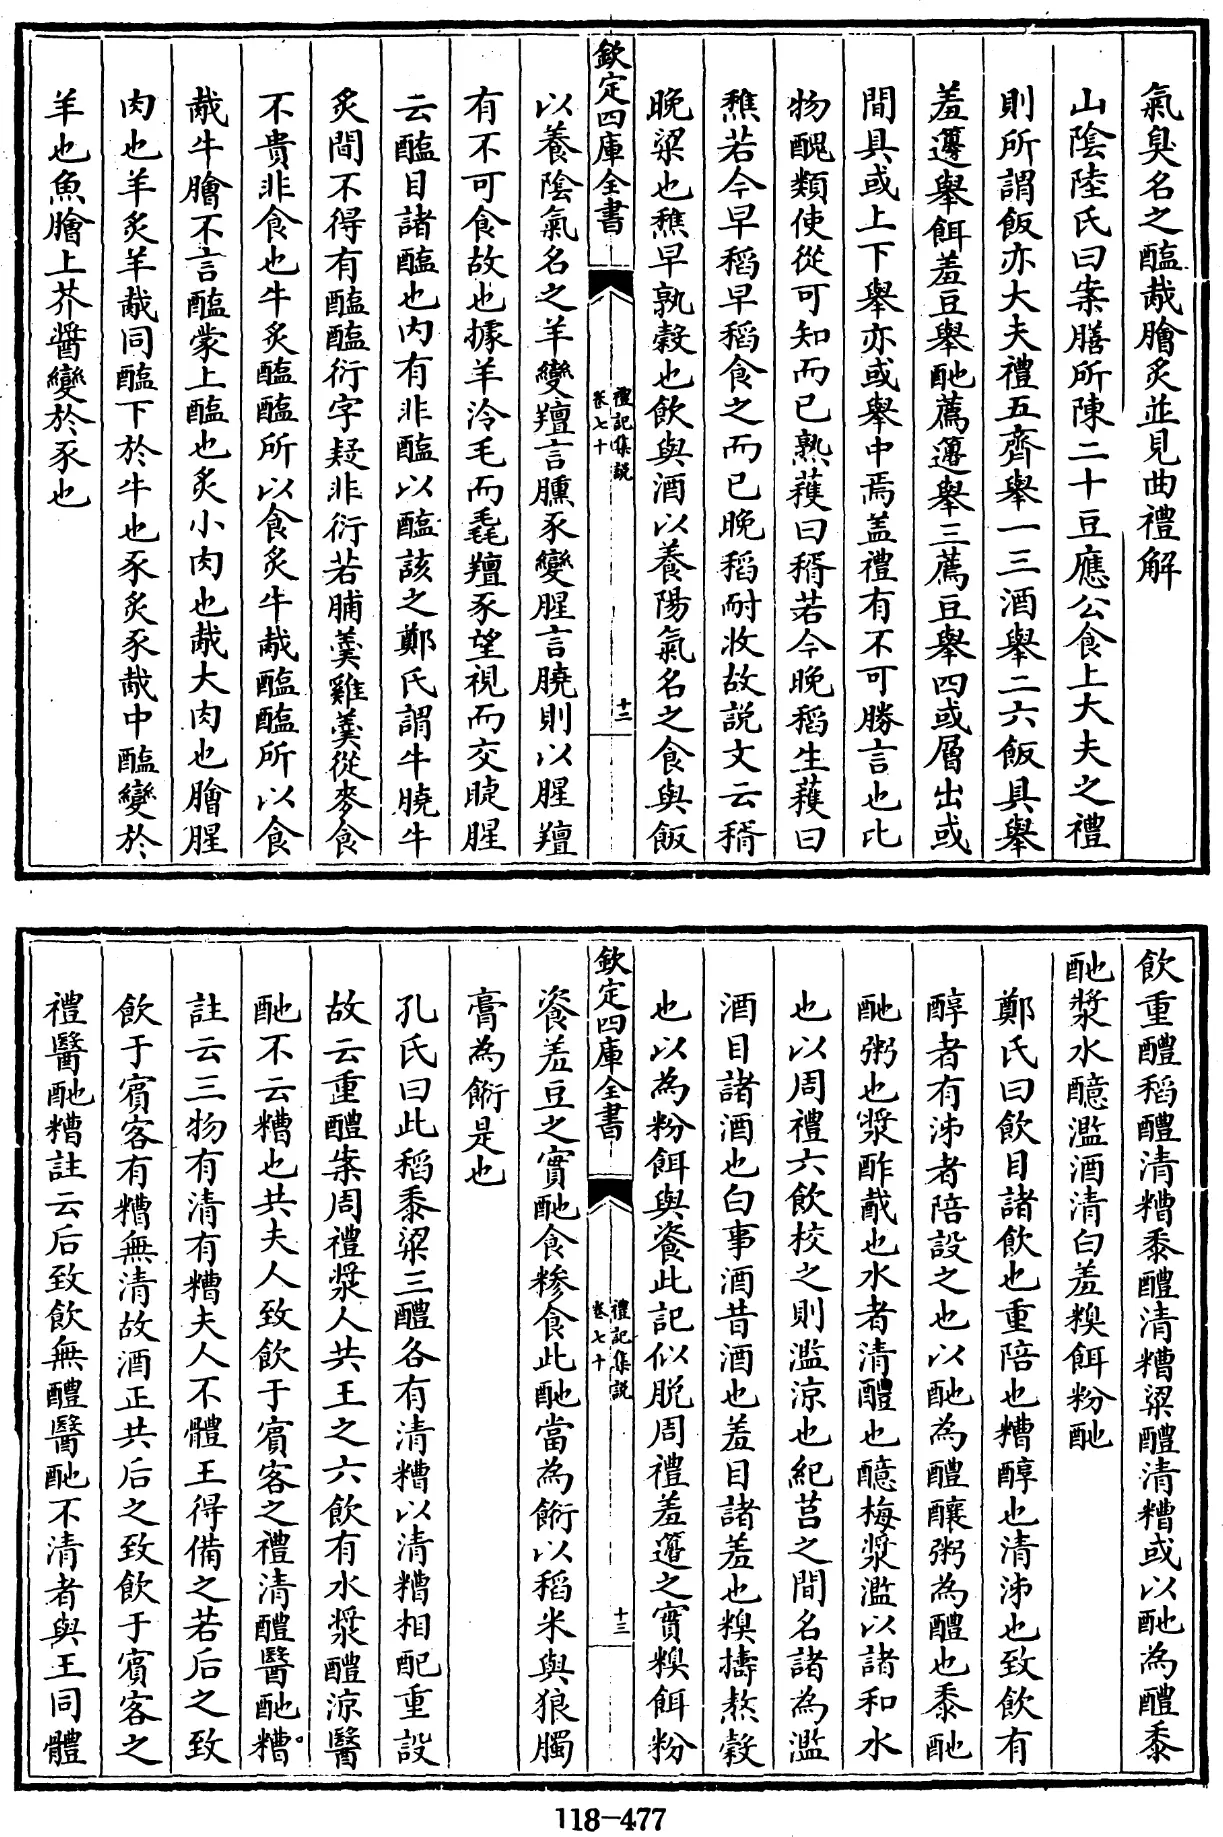 氣臭名之醢胾膾炙並見曲禮解
山陰陸氏曰案膳所陳二十豆應公食上大夫之禮
則所謂飯亦大夫禮五齊舉一三酒舉二六飯具舉
羞籩舉餌羞豆舉酏薦籩舉三薦豆舉四或層出或
間具或上下舉亦或舉中焉盖禮有不可勝言也比
物醜類使從可知而已熟穫曰稰若今晚稻生穫曰
穛若今早稻早稻食之而已晚稻耐收故説文云稰
晚粱也穛早孰穀也飲與酒以養陽氣名之食與飯
欽定四庫全書
禮記集説
卷七十
十二
以養陰氣名之羊變羶言膻豕變腥言膮則以腥羶
有不可食故也據羊泠毛而毳羶豕望視而交睫腥
云醢目諸醢也内有非醢以醢該之鄭氏謂牛膮牛
炙間不得有醢醢衍字疑非衍若脯羹雞羹從麥食
不貴非食也牛炙醢醢所以食炙牛胾醢醢所以食
胾牛膾不言醢蒙上醢也炙小肉也胾大肉也膾腥
肉也羊炙羊胾同醢下於牛也豕炙豕胾中醢變於
羊也魚膾上芥醬變於豕也
飲重醴稻醴清糟黍醴清糟粱醴清糟或以酏為醴黍
酏漿水醷濫酒清白羞糗餌粉酏
鄭氏曰飲目諸飲也重陪也糟醇也清泲也致飲有
醇者有泲者陪設之也以酏為醴釀粥為醴也黍酏
酏粥也漿酢胾也水者清醴也醷梅漿濫以諸和水
也以周禮六飲校之則濫涼也紀莒之間名諸為濫
酒目諸酒也白事酒昔酒也羞目諸羞也糗擣熬穀
也以為粉餌與餈此記似脱周禮羞籩之實糗餌粉
欽定四庫全書
禮記集説
卷七十
十三
餈羞豆之實酏食糝食此酏當為餰以稻米與狼臅
膏為餰是也
孔氏曰此稻黍粱三醴各有清糟以清糟相配重設
故云重醴案周禮漿人共王之六飲有水漿醴涼醫
酏不云糟也共夫人致飲于賓客之禮清醴醫酏糟
註云三物有清有糟夫人不體王得備之若后之致
飲于賓客有糟無清故酒正共后之致飲于賓客之
禮醫酏糟註云后致飲無醴醫酏不清者與王同體
118-477